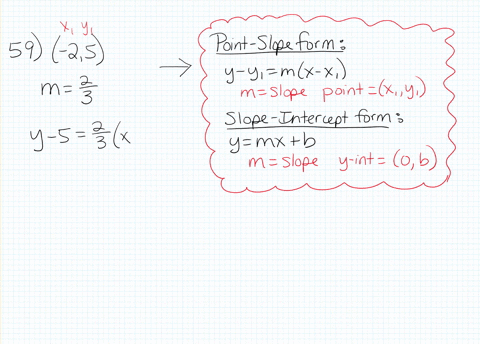 x₁ y₁
59) (-2,5)
m = 2/3
y-5 = 2/3 (x
Point-Slope form:
y-y₁ = m(x-x₁)
m=slope point = (x₁, y₁)
Slope-Intercept form:
y = mx + b
m = slope y-int = (0, b)